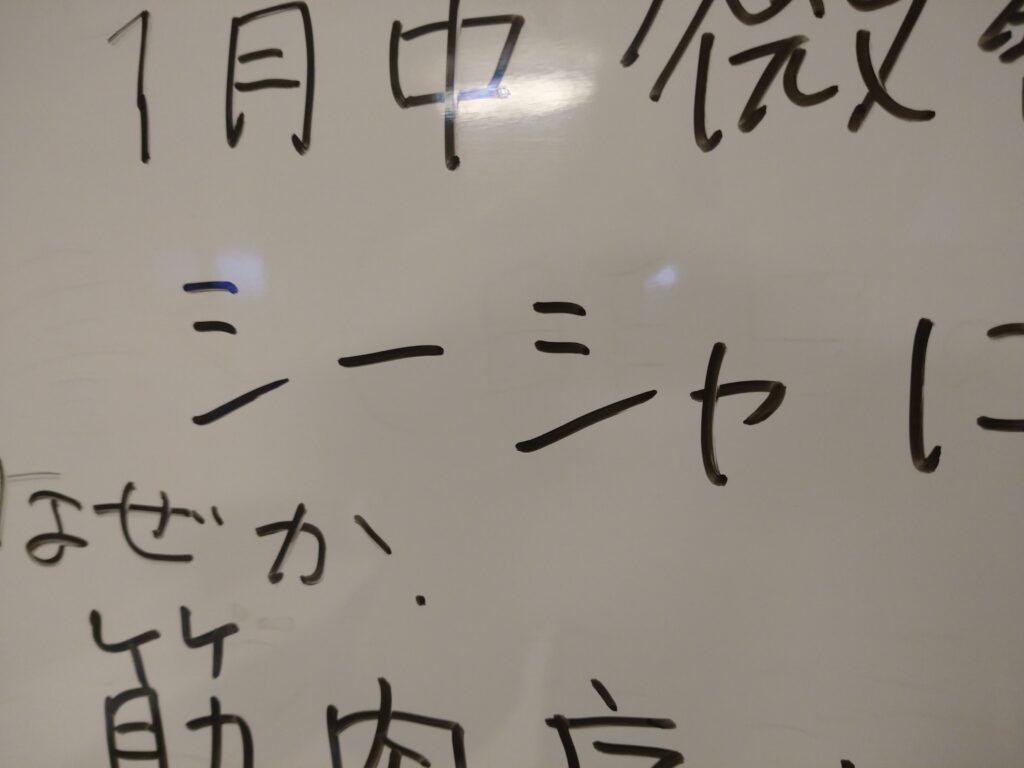 1月中 微
シーシャに
なぜか.
筋肉